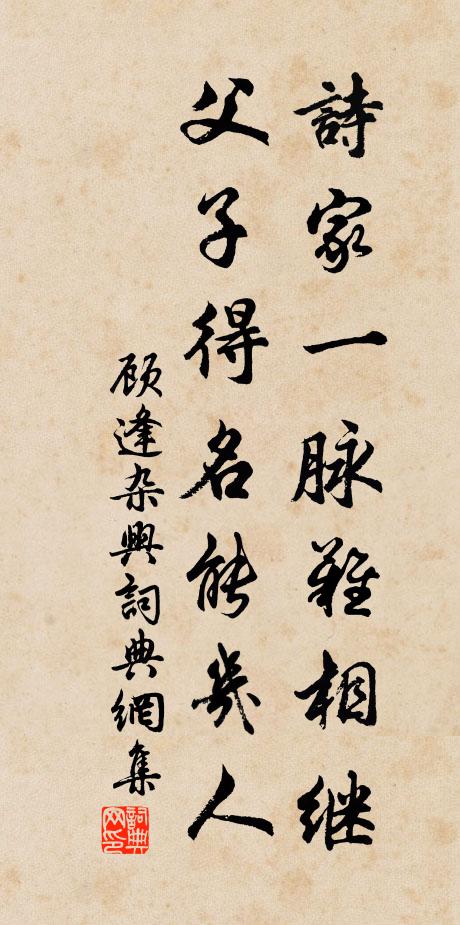 詩家一脉難相继
父子得名能幾人
顾逢杂興詞典網集
詞典网印